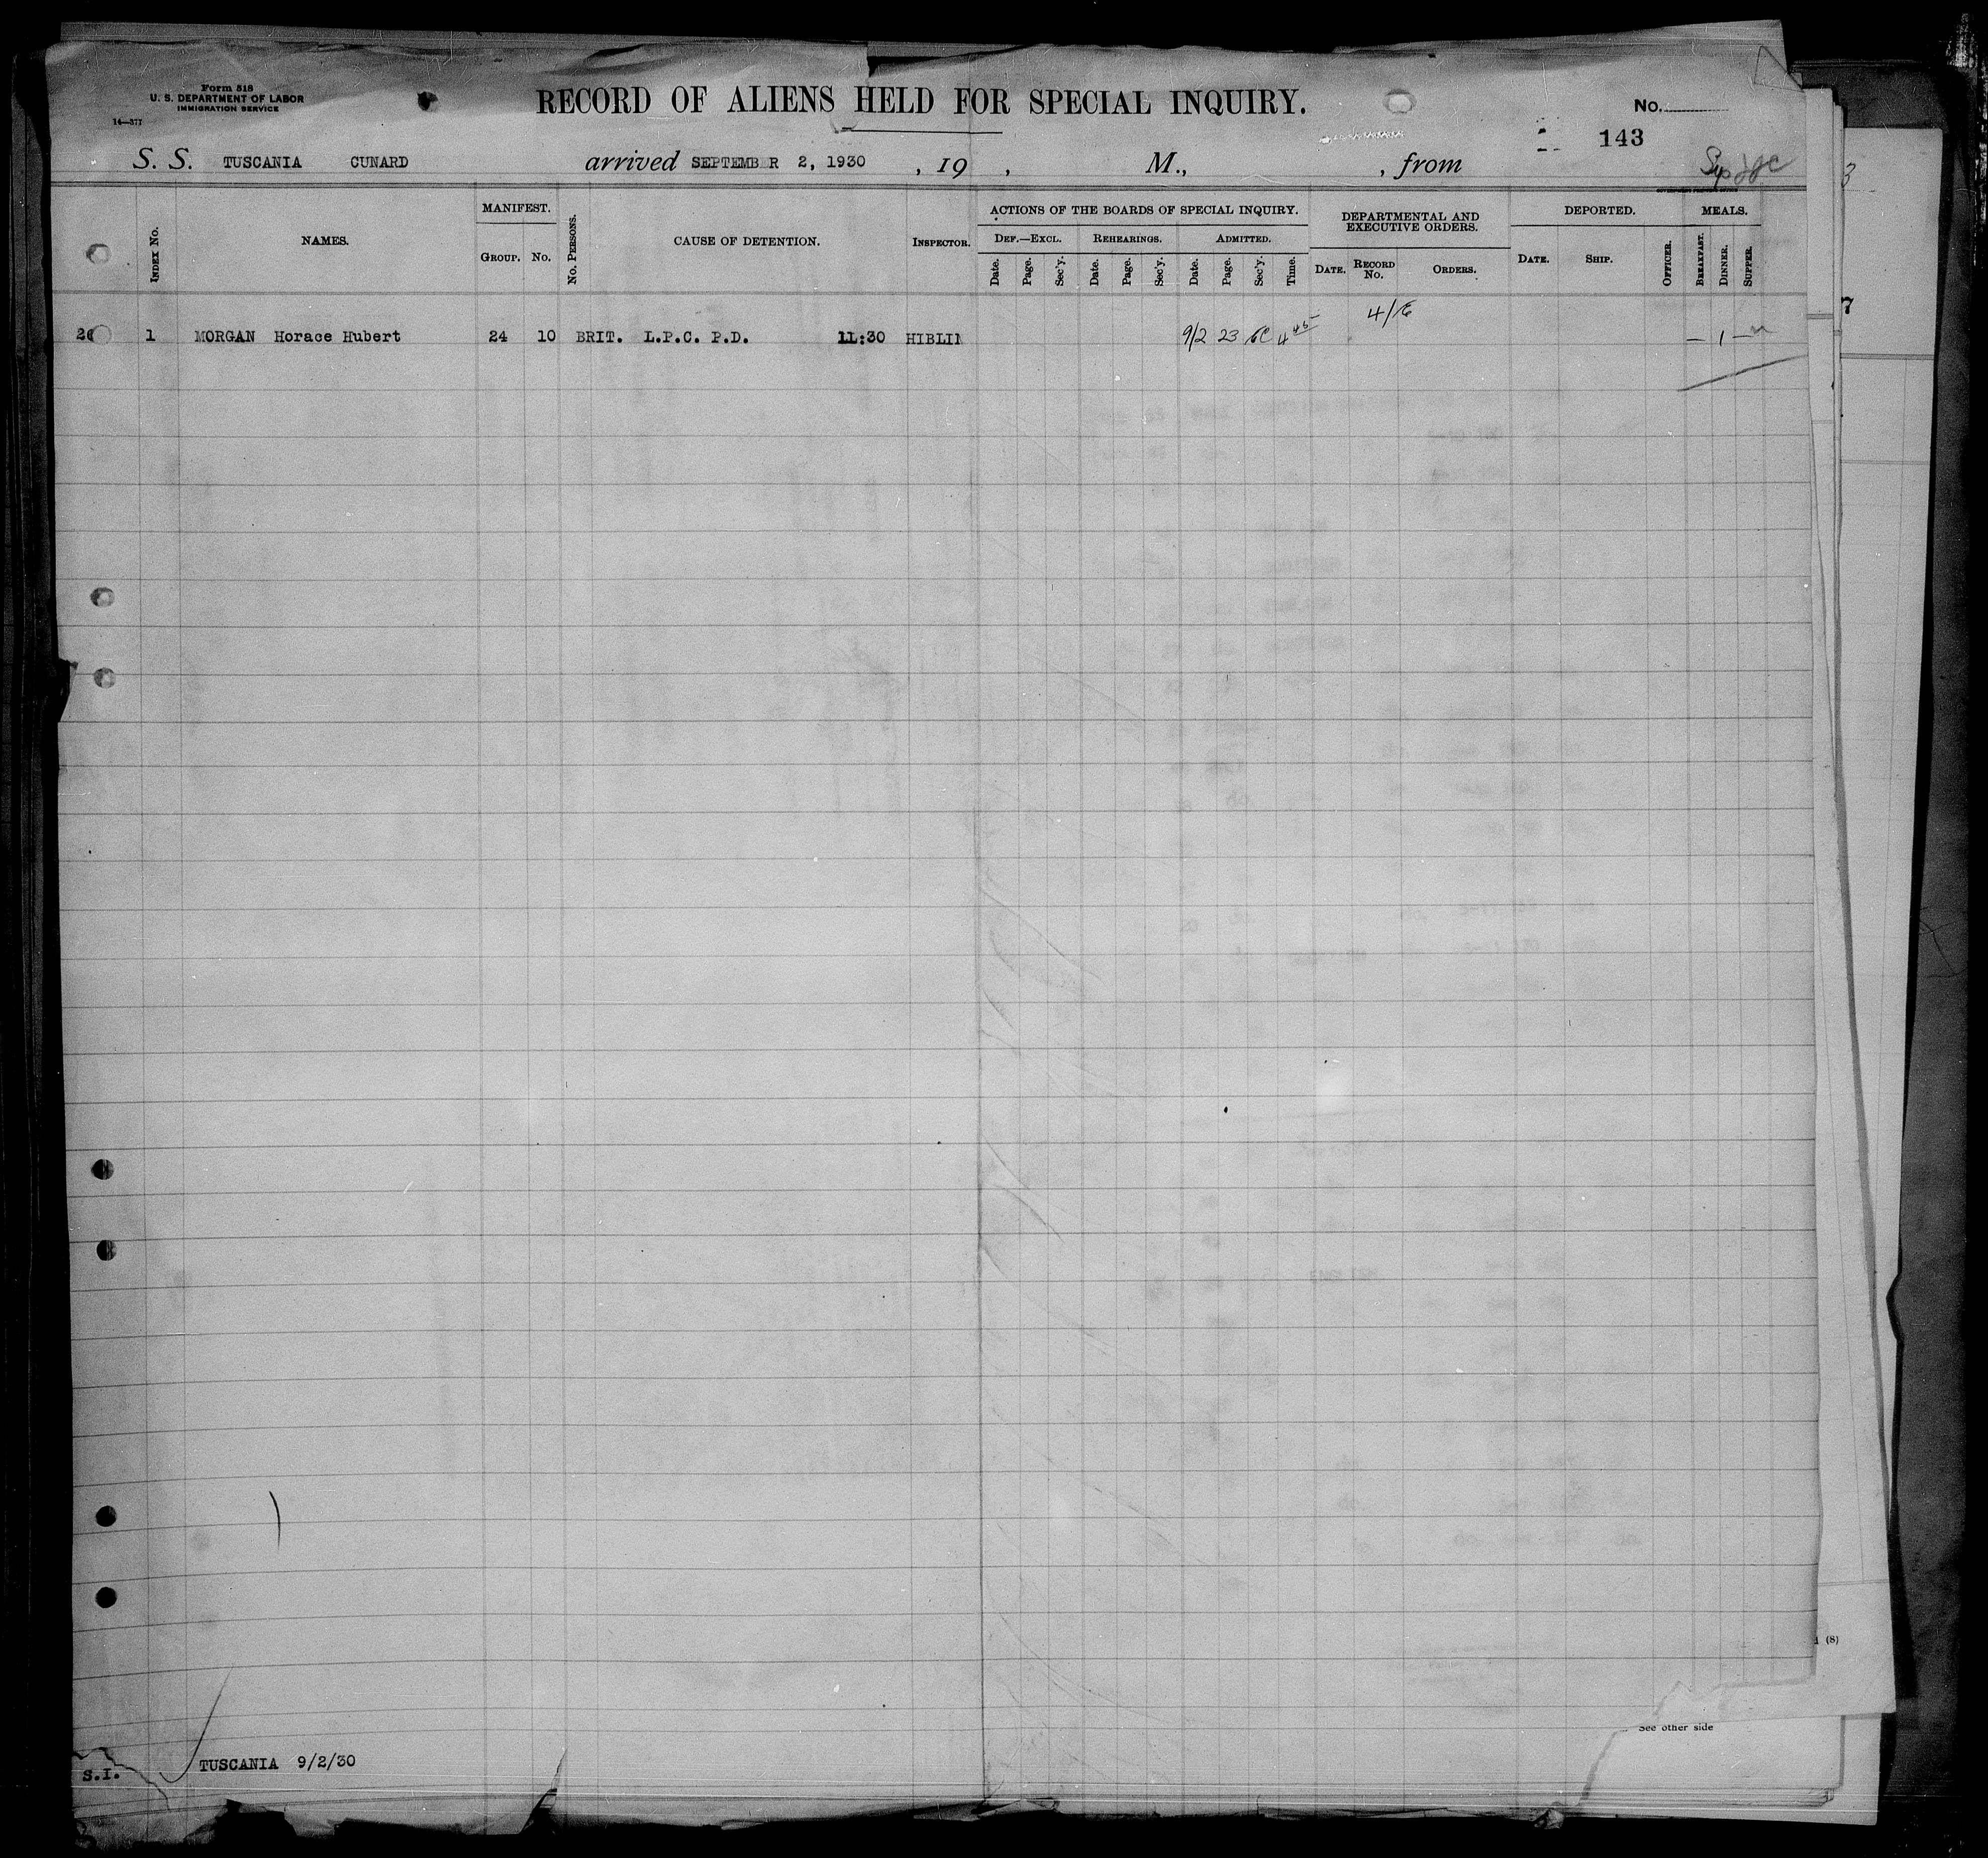 Form 518
U. S. DEPARTMENT OF LABOR
IMMIGRATION SERVICE
14—377
RECORD OF ALIENS HELD FOR SPECIAL INQUIRY.
No.
143
S. S. TUSCANIA CUNARD arrived SEPTEMBER 2, 1930 , 19 , M., , from
INDEX No. NAMES. MANIFEST. No. PERSONS. CAUSE OF DETENTION. INSPECTOR. ACTIONS OF THE BOARDS OF SPECIAL INQUIRY. DEPARTMENTAL AND EXECUTIVE ORDERS. DEPORTED. MEALS.
GROUP. No. DEF.—EXCL. REHEARINGS. ADMITTED. DATE. RECORD No. ORDERS. DATE. SHIP. OFFICER. BREAKFAST. DINNER. SUPPER.
Date. Page. Sec'y. Date. Page. Sec'y. Date. Page. Sec'y. Time.
1 MORGAN Horace Hubert 24 10 BRIT. L.P.C. P.D. 11:30 HIBLIN 9/2 23 4 45 — 1 —
3
7
(8)
See other side
S.I. TUSCANIA 9/2/30